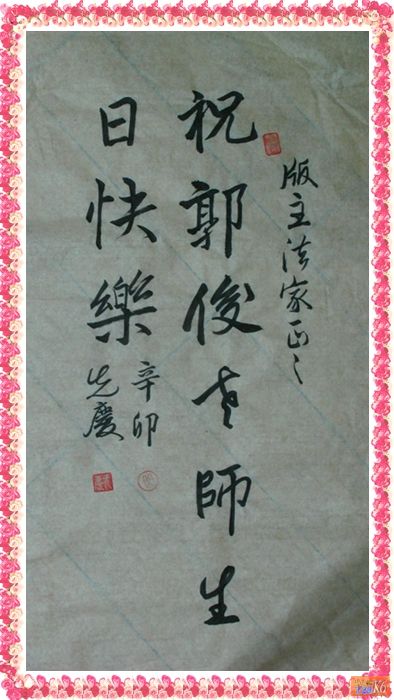 版主法家正之
祝郭俊老師生
日快樂
辛卯
先慶